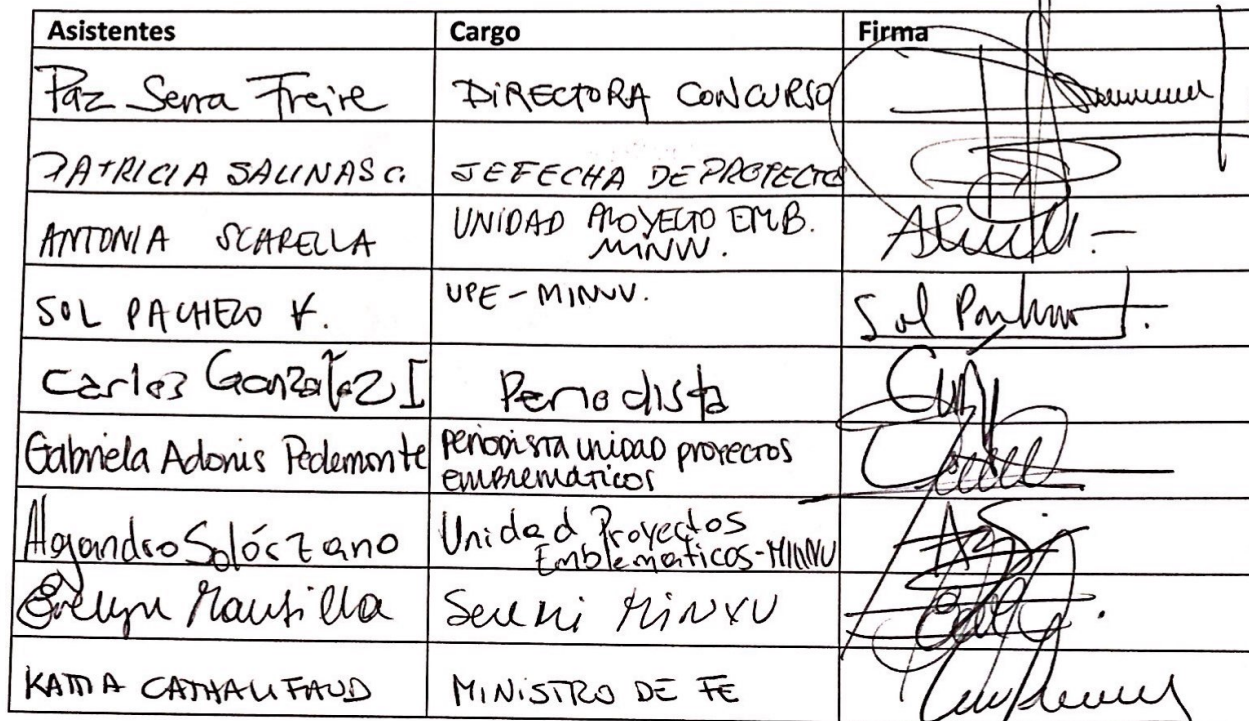 Asistentes Cargo Firma
Paz Serra Freire DIRECTORA CONCURSO
PATRICIA SALINAS C. JEFECHA DE PROYECTO
ANTONIA SCARELLA UNIDAD PROYECTO EMB.
MINVU.
SOL PACHECO V. UPE - MINVU. Sol Pacheco
Carlos González I Periodista
Gabriela Adonis Pedemonte PERIODISTA UNIDAD PROYECTOS
EMBLEMÁTICOS
Alejandro Solórzano Unidad Proyectos
Emblemáticos - MINVU
Evelyn Mansilla Seremi MINVU
KATIA CATHALIFAUD MINISTRO DE FE